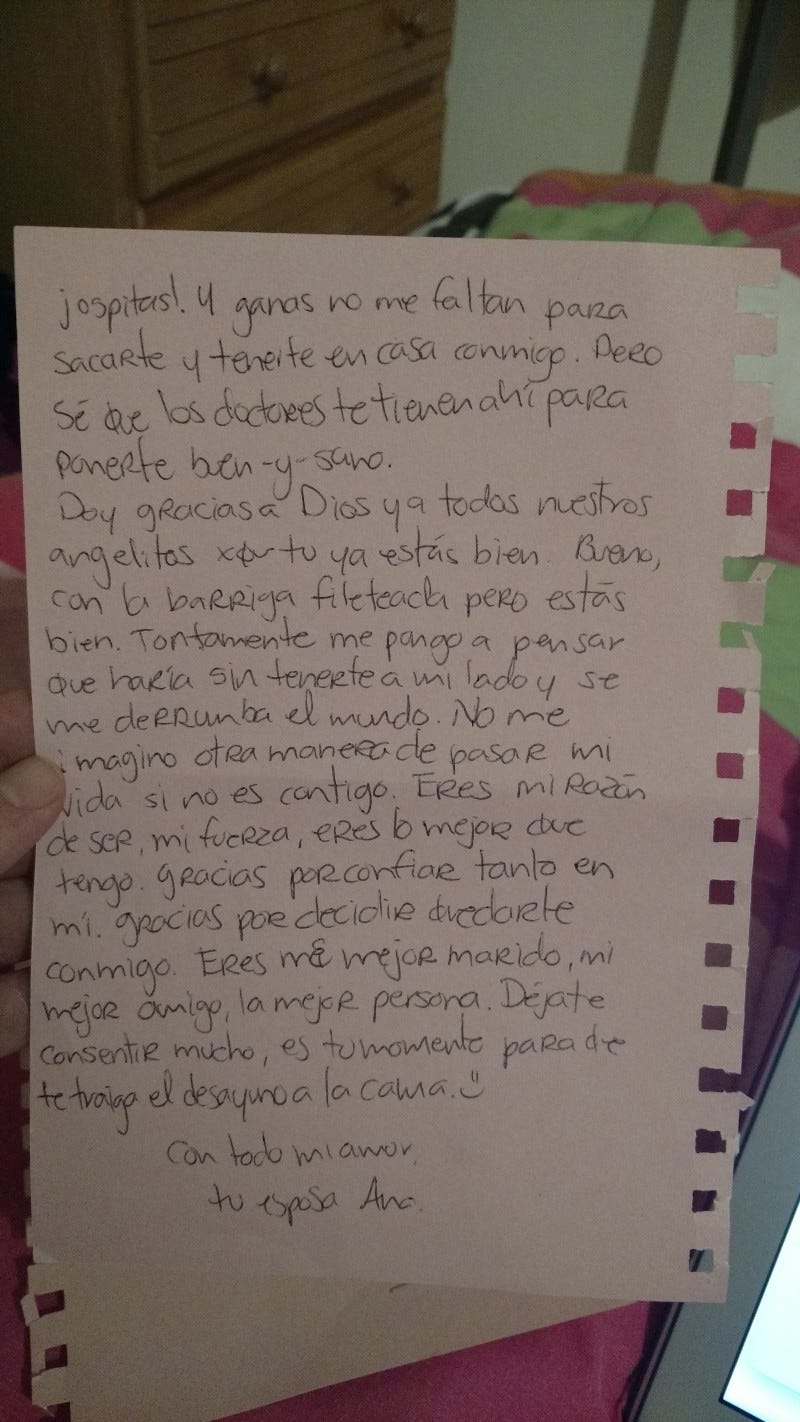 ¡ospitas!. Y ganas no me faltan para
sacarte y tenerte en casa conmigo. Pero
sé que los doctores te tienen ahí para
ponerte bien-y-sano.
Doy gracias a Dios y a todos nuestros
angelitos xq tu ya estás bien. Bueno,
con la barriga fileteada pero estás
bien. Tontamente me pongo a pensar
que haría sin tenerte a mi lado y se
me derrumba el mundo. No me
imagino otra manera de pasar mi
vida si no es contigo. Eres mi razón
de ser, mi fuerza, eres lo mejor que
tengo. Gracias por confiar tanto en
mí. Gracias por decidir quedarte
conmigo. Eres mi mejor marido, mi
mejor amigo, la mejor persona. Déjate
consentir mucho, es tu momento para qe
te traiga el desayuno a la cama.
Con todo mi amor,
tu esposa Ana.